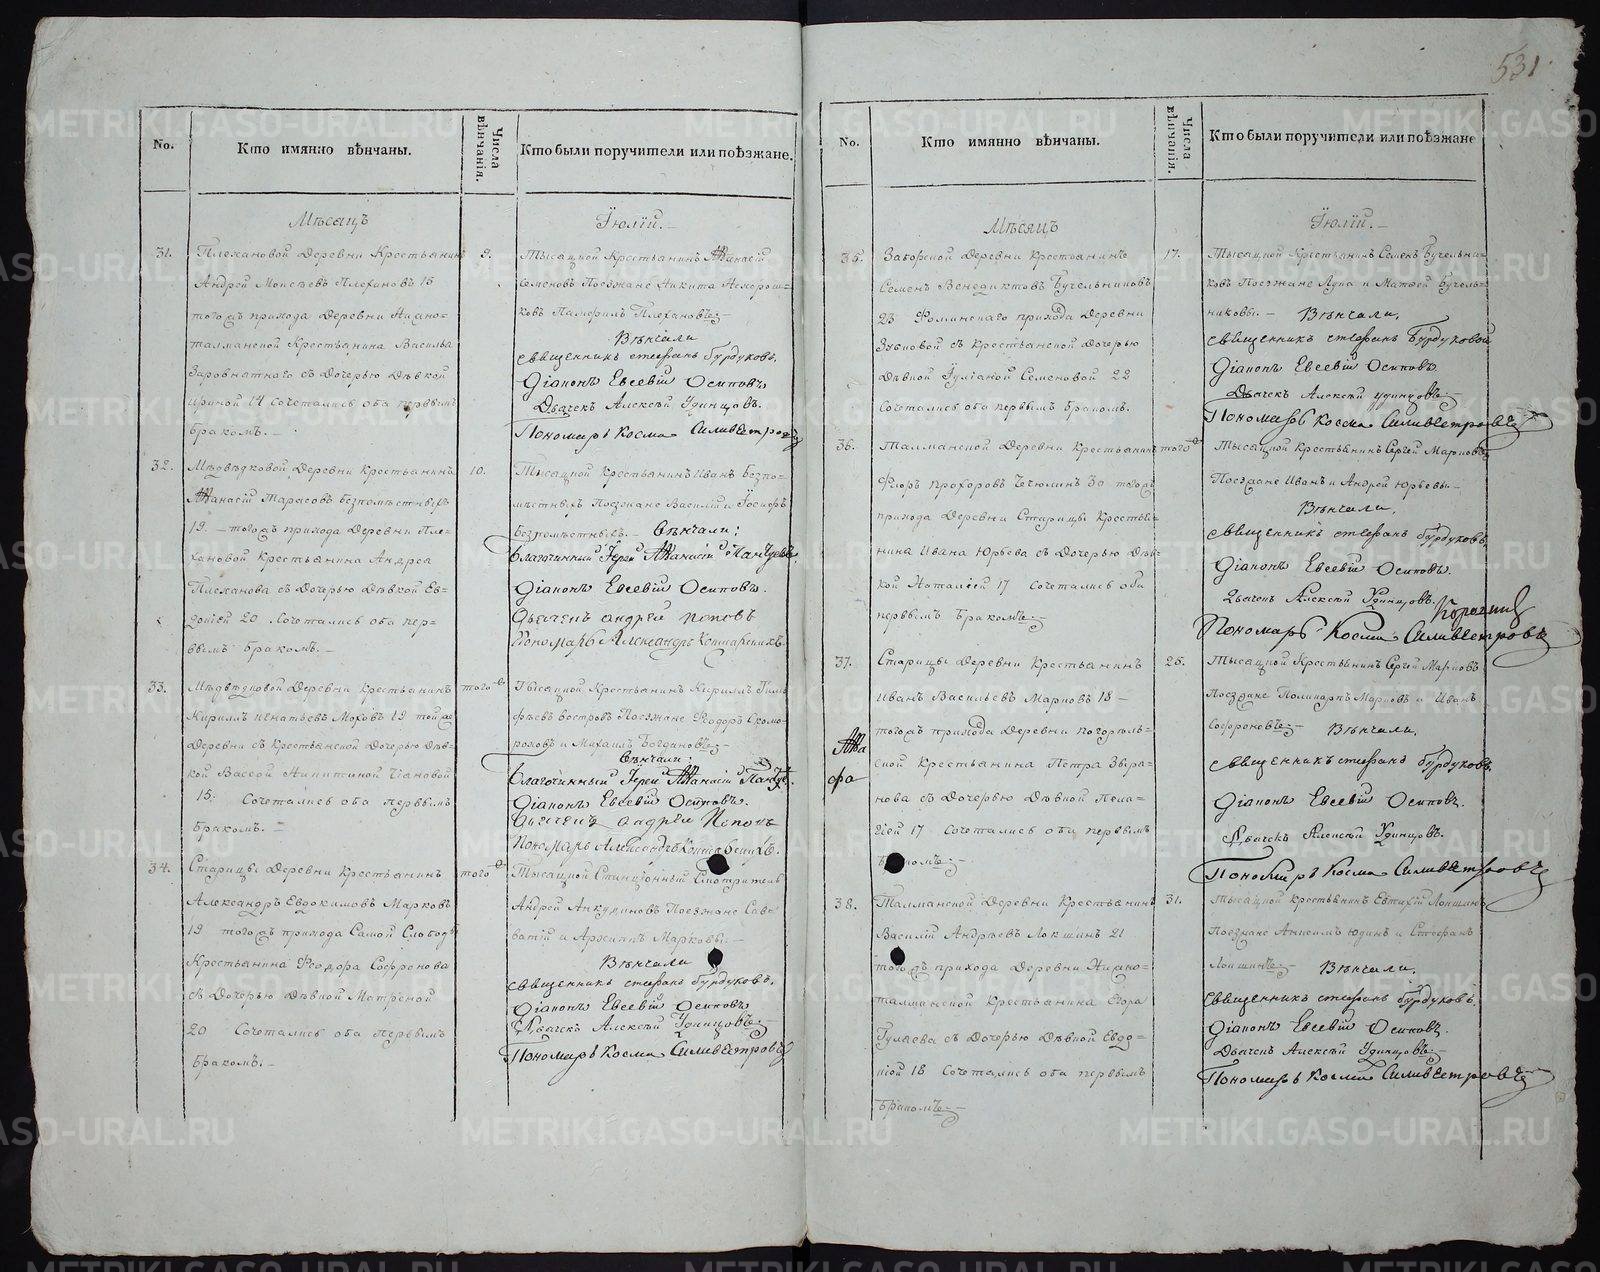 531
No.
Кто имянно вѣнчаны.
Числа вѣнчанія.
Кто были поручители или поѣзжане.
Мѣсяцъ
Іюлій.
31.
Плехановой Деревни Крестьянинъ
Андрей Моисѣевъ Плехановъ 18
тогожъ прихода Деревни
талманской Крестьянина Василья
съ Дочерью Дѣвкой
Ириной 14 сочетались оба первымъ
бракомъ.
9.
Тысяцкой Крестьянинъ Афанасій
Семеновъ Поезжане Никита
Памфилъ Плехановъ
Вѣнчали
священникъ стефанъ бурдуковъ
Діаконъ Евсевій Осиповъ
Дьячекъ Алексѣй Удинцовъ.
Пономарь Косма Силивестровъ
32.
Медвѣдковой Деревни крестьянинъ
Афанасій Тарасовъ Безпомѣстныхъ
19. тогожъ прихода Деревни Пле-
хановой Крестьянина Андрея
Плеханова съ Дочерью Дѣвкой Ев-
докіей 20 Сочетались оба пер-
вымъ бракомъ.
10.
Тысяцкой крестьянинъ Иванъ Безпо-
мѣстныхъ Поезжане Василій и Іосифъ
Безпомѣстныхъ. Вѣнчали:
благочинный Іерей Афанасій
Діаконъ Евсевій Осиповъ.
Дьячекъ андрей поповъ
Пономарь Александръ
33.
Медвѣдковой Деревни крестьянинъ
Кирилъ игнатьевъ Моховъ 19 той же
Деревни съ Крестьянской Дочерью Дѣв-
кой Вассой Никитиной
15: Сочетались оба первымъ
бракомъ.
того
Тысяцкой Крестьянинъ Кирилъ
востровъ Поезжане Ѳеодоръ Скомо-
роховъ и Михаилъ Богдановъ
Вѣнчали:
благочинный Іерей Афанасій
Діаконъ Евсевій Осиповъ.
Дьячекъ андрей Поповъ
Пономарь Александръ
34.
Старицы Деревни крестьянинъ
Александръ Евдокимовъ Марковъ
19 тогожъ прихода Самой Слободы
Крестьянина Ѳеодора Софронова
съ Дочерью Дѣвкой Матреной
20 Сочетались оба первымъ
бракомъ.
того
Тысяцкой Станціонный Смотритель
Андрей Анкудиновъ Поезжане Сав-
ватій и Архипъ Марковы.
Вѣнчали
священникъ стефанъ бурдуковъ.
Діаконъ Евсевій Осиповъ
Дьячекъ Алексѣй Удинцовъ
Пономарь Косма Силивестровъ
No.
Кто имянно вѣнчаны.
Числа вѣнчанія.
Кто были поручители или поѣзжане
Мѣсяцъ
Іюлій.
35.
Заборской Деревни крестьянинъ
Семенъ Венедиктовъ Бучельниковъ
23 Фоминскаго прихода Деревни
Зуевой съ Крестьянской Дочерью
Дѣвкой Іуліаной Семеновой 22
Сочетались оба первымъ бракомъ.
17.
Тысяцкой Крестьянинъ Семенъ Бучельни-
ковъ Поезжане Лука и Матвей Бучель-
никовы. Вѣнчали.
священникъ стефанъ Бурдуковъ
Діаконъ Евсевій Осиповъ
Дьячекъ Алексѣй удинцовъ
Пономарь Косма Силивестровъ
36.
Талманской Деревни Крестьянинъ
Флоръ прохоровъ 30 тогожъ
прихода Деревни Старицы Крестья-
нина Ивана Юрьева съ Дочерью Дѣв-
кой Наталіей 17 Сочетались оба
первымъ Бракомъ.
того
Тысяцкой Крестьянинъ Сергей Марковъ
Поезжане Иванъ и Андрей Юрьевы.
Вѣнчали.
священникъ стефанъ бурдуковъ
Діаконъ Евсевій Осиповъ.
Дьячекъ Алексѣй Удинцовъ.
Пономарь Косма Силивестровъ
37.
Старицы Деревни Крестьянинъ
Иванъ Васильевъ Марковъ 18
тогожъ прихода Деревни погорель-
ской Крестьянина Петра
нова съ Дочерью Дѣвкой Пела-
гіей 17 Сочетались оба первымъ
бракомъ.
25.
Тысяцкой Крестьянинъ Сергей Марковъ
Поезжане Поликарпъ Марковъ и Иванъ
Софроновъ. Вѣнчали.
священникъ стефанъ бурдуковъ
Діаконъ Евсевій Осиповъ.
Дьячекъ Алексѣй Удинцовъ.
Пономарь Косма Силивестровъ
38.
Талманской Деревни Крестьянинъ
Василій Андрѣевъ Локшинъ 21
тогожъ прихода Деревни
талманской Крестьянина Егора
съ Дочерью Дѣвкой Евдо-
кіей 18 Сочетались оба первымъ
бракомъ.
31.
Тысяцкой крестьянинъ Евтихій Локшинъ
Поезжане Анисимъ юдинъ и Стефанъ
Локшинъ. Вѣнчали.
Священникъ стефанъ бурдуковъ.
Діаконъ Евсевій Осиповъ.
Дьячекъ Алексѣй Удинцовъ.
Пономарь Косма Силивестровъ
METRIKI.GASO-URAL.RU